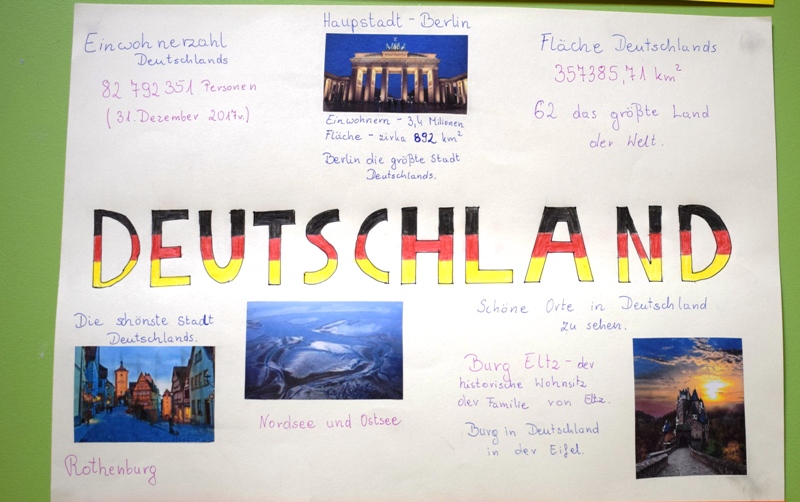 Einwohnerzahl
Deutschlands
82 792 351 Personen
(31. Dezember 2017v.)
Haupstadt - Berlin
Einwohnern - 3,4 Milionen
Fläche - zirka 892 km²
Berlin die größte Stadt
Deutschlands.
Fläche Deutschlands
357385,71 km²
62 das größte Land
der Welt.
DEUTSCHLAND
Die schönste Stadt
Deutschlands.
Rothenburg
Nordsee und Ostsee
Schöne Orte in Deutschland
zu sehen.
Burg Eltz - der
historische Wohnsitz
der Familie von Eltz.
Burg in Deutschland
in der Eifel.